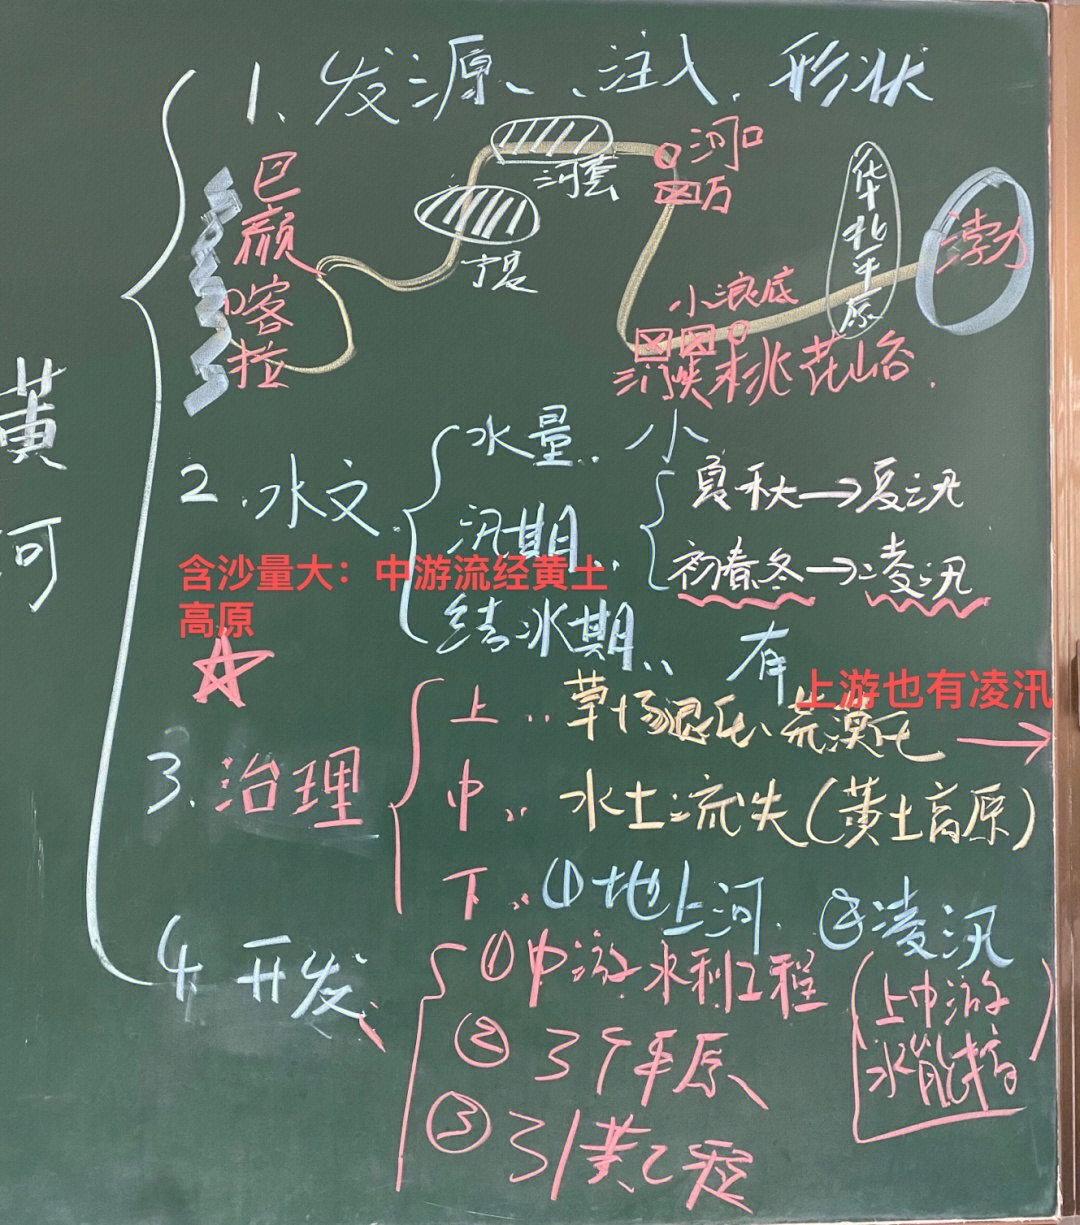 黄河
1、发源、注入、形状
巴颜喀拉
宁夏
河套
河口
万
华北平原
渤
小浪底
三门峡
桃花峪
2、水文
水量：小
汛期：
夏秋→夏汛
初春冬→凌汛
含沙量大：中游流经黄土
高原
结冰期：有
上游也有凌汛
3、治理
上：草场退化、荒漠化→
中：水土流失(黄土高原)
下：①地上河 ②凌汛
4、开发
①中游水利工程
(上中游
水能丰富)
②3个平原
③引黄